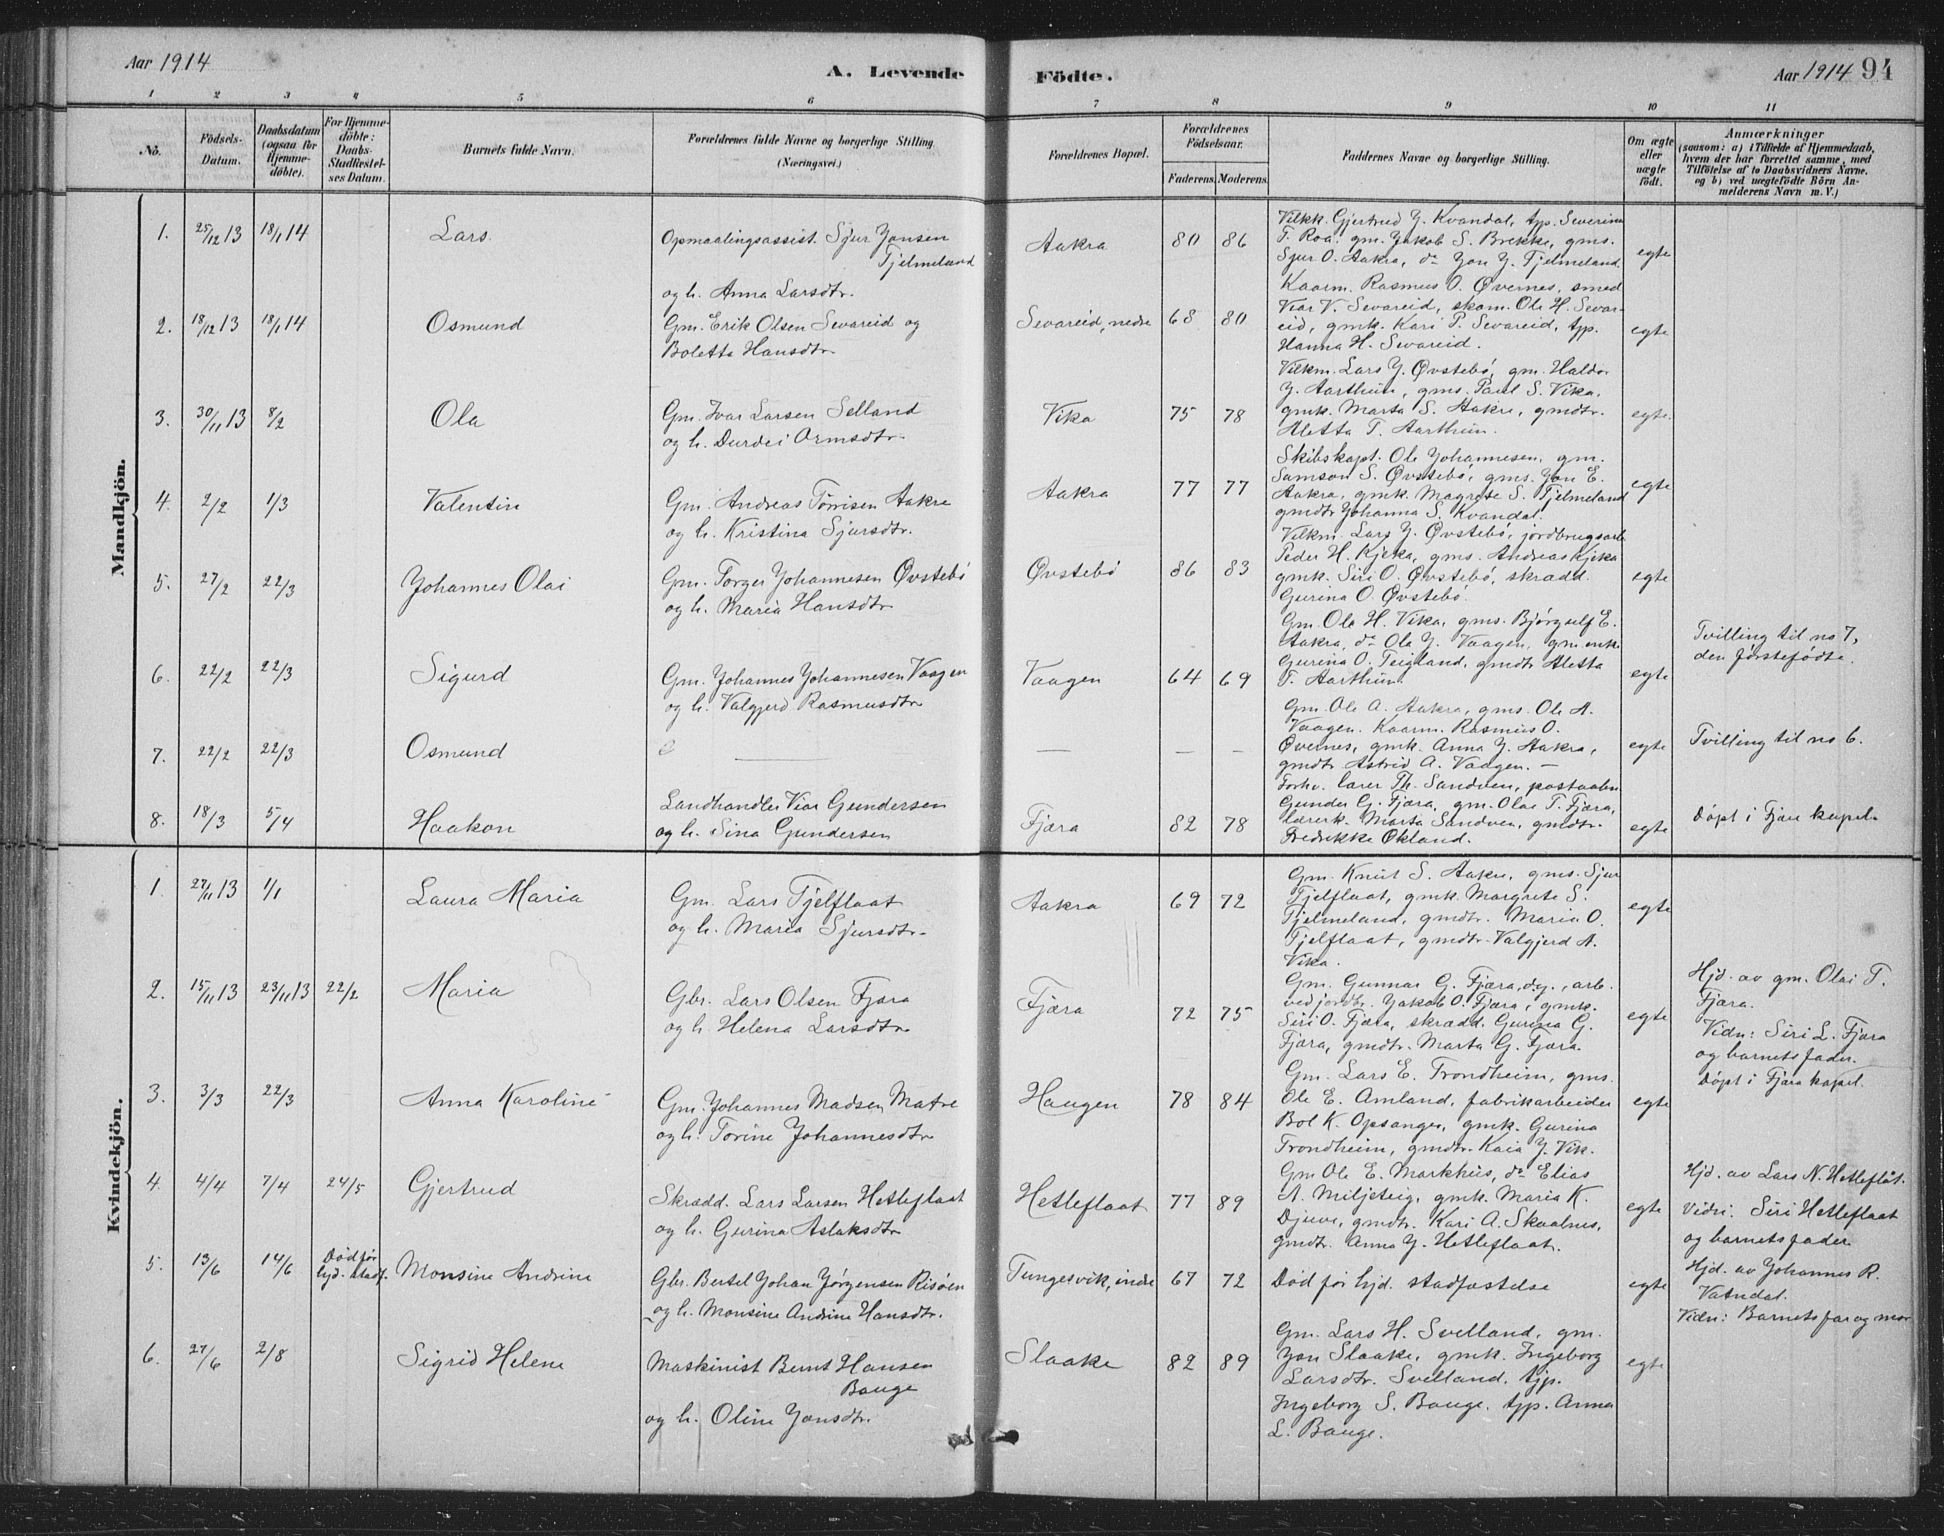 Aar 1914
A. Levende Födte.
Aar 1914 94
1 2 3 4 5 6 7 8 9 10 11
No.
Födsels-Datum.
Daabsdatum (ogsaa for Hjemme-döbte).
For Hjemme-döbte: Daabs-Stadfestel-ses Datum.
Barnets fulde Navn.
Forældrenes fulde Navne og borgerlige Stilling (Næringsvei.)
Forældrenes Bopæl.
Forældrenes Födselsaar.
Faderens. Moderens.
Faddernes Navne og borgerlige Stilling.
Om ægte eller uægte födt.
Anmærkninger
(saasom: a) i Tilfælde af Hjemmedaab, hvem der har forrettet samme, med Tilföielse af to Daabsvidners Navne, og b) ved uægtefödte Börn An-melderens Navn m. V.)
Mandkjön.
1. 25/12 13 18/1 14 Lars.
Opmaalingsassist. Sjur Jansen
Fjelmeland
og h. Anna Larsdtr.
Aakra 80 86
Vilkk. Gjertrud Y. Kvandal, tjp. Severina
T. Roa. gm. Jakob S. Brekke, gms.
Sjur O. Aakra, do Jon J. Fjelmeland
egte
2. 18/12 13 18/1 14 Osmund
Gm. Erik Olsen Sevareid og
Boletta Hansdtr.
Sevareid, nedre 68 80
Kaarm. Rasmus O. Øvernes, smed
Viar V. Sevareid, skom. Ole H. Sevar-
eid, gmk. Kari P. Sevareid, tjp.
Hanna H. Sevareid.
egte
3. 30/11 13 8/2 Ola
Gm. Ivar Larsen Selland
og h. Durdei Ormsdtr.
Vika 75 78
Vilkm. Lars J. Øvstebö, gm. Haldor
J. Aarthun, gms. Paul S. Vika,
gmk. Marta S. Aakre, gmdtr.
Aletta T. Aarthun.
egte.
4. 2/2 1/3 Valentin
Gm. Andreas Tørrisen Aakre
og h. Kristina Sjursdtr.
Aakra 77 77
Skibskapt. Ole Johannesen, gm.
Samson S. Øvstebö, gms. Jon E.
Aakra, gmk. Magrete S. Fjelmeland
gmdtr Johanna S. Kvandal.
egte
5. 27/2 22/3 Johannes Olai
Gm. Torger Johannesen Øvstebö
og h. Maria Hansdtr.
Øvstebö 86 83
Vilkm. Lars J. Øvstebö, jordbrugsarb.
Peder H. Kjeka, gms. Andreas Kjeka
gmk. Siri O. Øvstebö, skrædd.
Gurina O. Øvstebö.
egte
6. 22/2 22/3 Sigurd
Gm. Johannes Johannesen Vaagen
og h. Valgjerd Rasmusdtr
Vaagen 64 69
Gm. Ole H. Vika, gms. Bjørgulf E.
Aakra, do Ole J. Vaagen, gm.enk.
Gurina O. Teigland, gmdtr Aletta
T. Aarthun.
egte
Tvilling til no 7,
den förstefödte.
7. 22/2 22/3 Osmund — — — —
Gm. Ole A. Aakra, gms. Ole A.
Vaagen. Kaarm. Rasmus O.
Øvernes, gmk. Anna J. Aakra,
gmdtr Astrid A. Vaagen. —
egte
Tvilling til no 6.
8. 18/3 5/4 Haakon
Landhandler Viar Gundersen
og h. Sina Gundersen
Fjæra 82 78
Forhv. lærer Th. Sandven, postaabn.
Gunder G. Fjæra, gm. Olai T. Fjæra,
lærerk. Marta Sandven, gmdtr.
Fredrikke Økland.
egte
Döpt i Fjære kapel.
Kvindekjön.
1. 27/11 13 1/1 Laura Maria
Gm. Lars Fjelflaat
og h. Maria Sjursdtr.
Aakra 69 72
Gm. Knut S. Aakre, gms. Sjur
Fjelflaat, gmk. Margrete S.
Fjelmeland, gmdtr. Maria O.
Fjelflaat, gmdtr. Valgjerd A.
Vika.
egte
2. 15/11 13 23/11 13 22/2 Maria
Gbr. Lars Olsen Fjæra
og h. Helena Larsdtr
Fjæra 72 75
Gm. Gunnar G. Fjæra, dg., arb.
ved jordbr. Jakob O. Fjæra, gmk.
Siri O. Fjæra, skrædd. Gurina G.
Fjæra, gmdtr. Marta G. Fjæra.
egte
Hjd. av gm. Olai T.
Fjæra.
Vidn: Siri L. Fjæra
og barnets fader.
Döpt i Fjæra kapel.
3. 3/3 22/3 Anna Karoline
Gm. Johannes Madsen Matre
og h. Torine Johannesdtr
Haugen 78 84
Gm. Lars E. Trondheim, gms.
Ole E. Amland, fabrikarbeider
Bol K. Opsanger, gmk. Gurina
Trondheim, gmdtr. Kaia J. Vik.
egte
4. 4/4 7/4 24/5 Gjertrud
Skrædd. Lars Larsen Hetleflaat
og h. Gurina Aslaksdtr
Hetleflaat 77 89
Gm Ole E. Markhus, do Elias
A. Miljeteig, gmk. Maria K.
Djuve, gmdtr. Kari A. Skaalnes,
gmdtr. Anna J. Hetleflaat.
egte
Hjd. av Lars N. Hetleflåt.
Vidn: Siri Hetleflaat
og barnets fader
5. 13/6 14/6 Död för hjd. stadf. Monsine Andrine
Gbr. Bertel Johan Jørgensen Risöen
og h. Monsine Andrine Hansdtr.
Tungesvik, indre 67 72
Död för hjd. stadfæstelse
egte
Hjd. av Johannes R.
Vatndal.
Vidn: Barnets far og mor
6. 27/6 2/8 Sigrid Helene
Maskinist Bernt Hansen
Bauge
og h. Oline Jansdtr.
Slaake 82 89
Gm. Lars H. Svelland, gm.
Jon Slaake, gmk. Ingeborg
Larsdtr. Svelland, tjp.
Ingeborg S. Bauge, tjp. Anna
L. Bauge.
egte